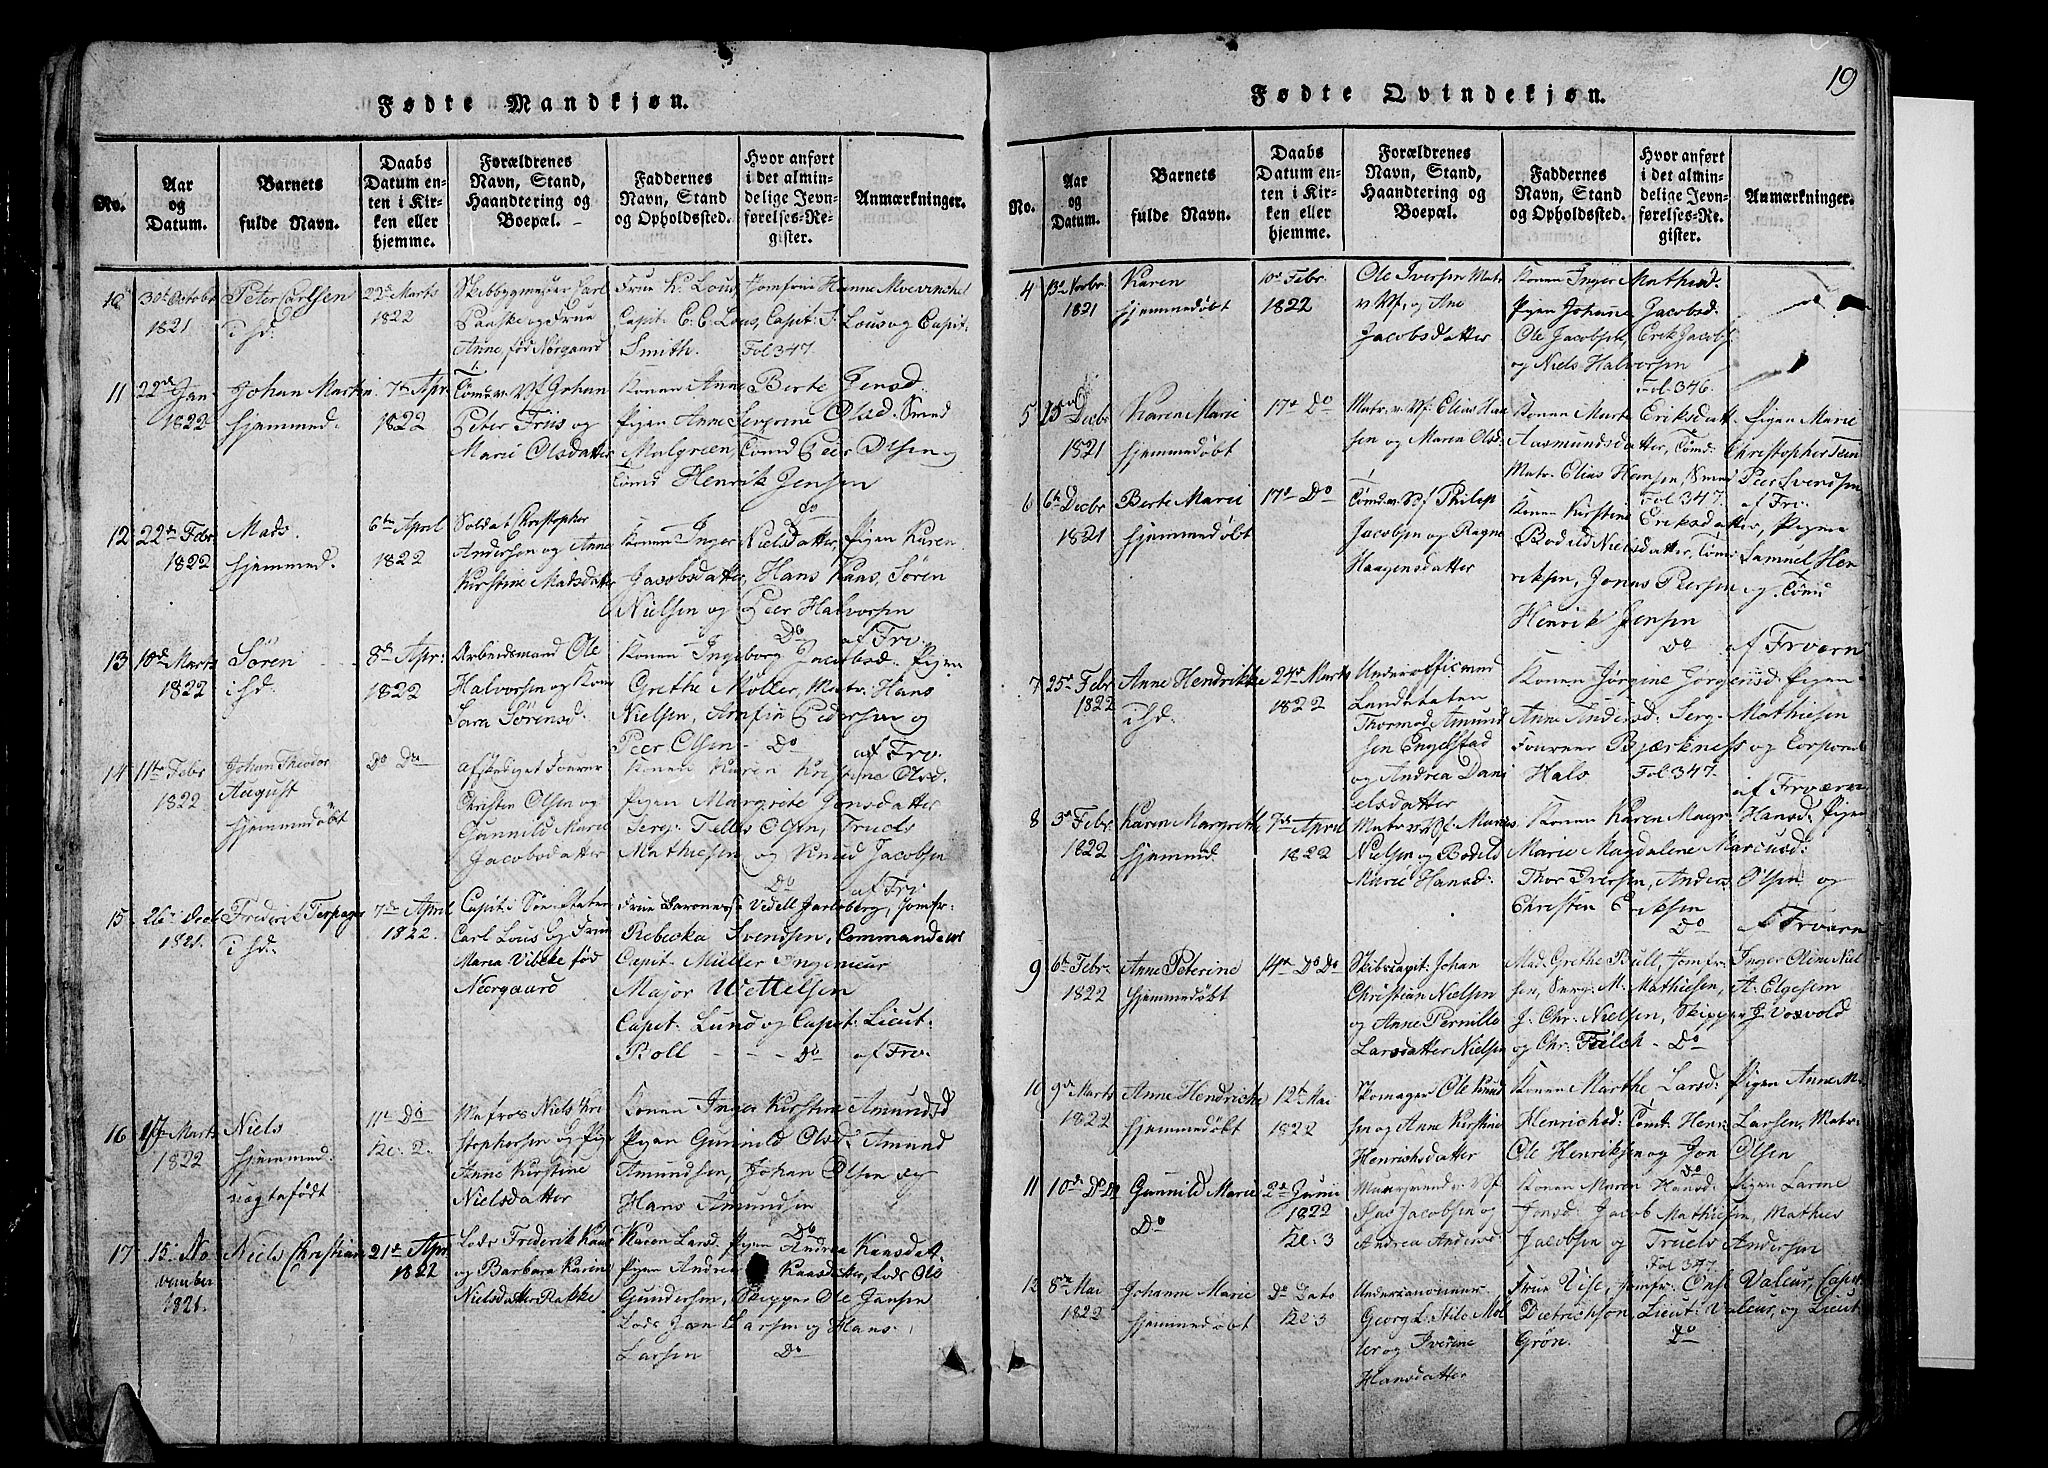 19
Fødte Mandkjøn.
No.
Aar
og
Datum.
Barnets
fulde Navn.
Daabs
Datum en-
ten i Kir-
ken eller
hjemme.
Forældrenes
Navn, Stand,
Haandtering og
Boepæl.
Faddernes
Navn, Stand
og Opholdssted.
Hvor anført
i det almin-
delige Jevn-
førelses-Re-
gister.
Anmærkninger.
10
30te October
1821
Peter Carlsen
22de Marts
1822
Skibbygmester Carl
Paaske og Frue
Anne, fød Nørgaard
Frue K. Lous, Jomfrue Hanne
Capit: C. C. Lous, Capit: S. Lous og Capit:
Smith. Fol 347.
11
22de Jan
1822
Johan Martin
hjemmed.
7de Apr
1822
Tømd. v. Vf Johan
Peter Friis og
Marie Olsdatter
Konen Anne Berte Jensd:
Pigen Anne Severine Olsd: Smed
Malgreen, Tømd Peer Olsen og
Tømd Henrik Jensen
Do
12
22de Febr
1822
Mads.
hjemmed.
6te April
1822
Soldat Christopher
Andersen og Anne
Kirstine Matsdatter
Konen Inger Nielsdatter, Pigen Karen
Jacobsdatter, Hans Hans, Søren
Nielsen og Peer Halvorsen
Do af Frv.
13
10de Marts
1822
Søren
8de Apr:
1822
Arbeidsmand Ole
Halvorsen og Kone
Sara Sørensd.
Konen Ingeborg Jacobsd: Pigen
Grethe Møller, Matr. Hans
Nielsen, Arnfin Pedersen og
Peer Olsen - Do af Frv.
14
11te Febr
1822
Johan Theodor
August
hjemmedøbt
Do Do
afskediget Fourer
Christen Olsen og
Gunnild Marie
Jacobsdatter
Konen Karen Kristine Olsd.
Pigen Margrete Jensdatter
Serg: Telles Olsen, Truels
Mathiesen og Knud Jacobsen
Do af Frv.
15
26de Decb
1821.
Frederik Terpager
7de April
1822.
Capit: i Søe-Etaten
Carl Lous og Frue
Maria Vibeke fød
Neergaard
Frue Baronesse Vedell Jarlsberg, Jomfr:
Rebecka Svendsen, Commandeur
Capit: Müller Ingenieur
Major Wettelsen
Capit: Lund og Capit: Lieut:
Roll - - - Do af Frv.
16
17de Marts
1822
Niels
hjemmed.
uægtefødt
11te Do
Kl. 2.
Matros Niels Chri
stophersen og Pige
Anne Kirstine
Nielsdatter
Konen Inger Kirstine Amundsd
Pigen Gunnild Olsd: Amund
Amundsen, Johan Olsen og
Hans Amundsen
Do
17
15. No
vember
1821.
Niels Christian
21de Apr
1822
Lods Frederik Kaas
og Barbara Karen
Nielsdatter Rakke
Karen Larsd. Pigen Andrea Kaasdatt
Pigen Andrea Kaasdatter, Lods Ole
Gundersen, Skipper Ole Jansen
Lods Jan Larsen og Hans
Larsen Do
Fødte Qvindekjøn.
No.
Aar
og
Datum.
Barnets
fulde Navn.
Daabs
Datum en-
ten i Kir-
ken eller
hjemme.
Forældrenes
Navn, Stand,
Haandtering og
Boepæl.
Faddernes
Navn, Stand
og Opholdssted.
Hvor anført
i det almin-
delige Jevn-
førelses-Re-
gister.
Anmærkninger.
4
13de Novbr
1821
Karen
hjemmedøbt
10de Febr
1822
Ole Iversen Matr
v Vf, og Ane
Jacobsdatter
Konen Inger Mathisd.
Pigen Johanne Jacobsd:
Ole Jacobsen, Erik Jacobs
og Niels Halvorsen
Fol 346.
5
15de Decbr
1821
Karen Marie
hjemmedøbt
17de Do
Matr. v. Vf: Elias Han
sen og Maren Olsd:
Konen Marte Eriksdatt, Pigen Marie
Aasmundsdatter, Tømd: Christopher
Matr. Elias Hansen, Peer Svendsen
Fol 347 af Frv.
6
6te Decbr
1821
Berte Marie
hjemmedøbt
17de Do
Tømd. v. Vf Philip
Jacobsen og Ragne
Haagensdatter
Konen Kirstine Eriksdatter, Pigen
Bodild Nielsdatter, Tømd Samuel Hen
riksen, Jonas Peersen og Tømd
Henrik Jensen
Do af Frværn
7
25de Febr
1822
Anne Hendrikke
24de Marts
1822
Underofficer ved
Landetaten
Thormod Amund
sen Engelstad
og Andrea Dani
elsdatter
Konen Jørgine Jørgensd: Pigen
Anne Andersd: Serg: Mathiesen
Foureer Bjerkness og Corporal
Hals Fol 347.
af Frværn
8
3de Febr.
1822
Karen Margrethe
hjemmed.
7de April
1822
Matr v Vf: Marius
Nielsen og Bodild
Marie Hansd:
Konen Karen Magr. Hansd: Pigen
Marie Magdalene Marcusd:
Thor Iversen, Anders Olsen og
Christen Eriksen
Do af Frværn
9
6te Febr
1822
Anne Peterine
hjemmedøbt
14de Do Do
Skibscapit: Johan
Christian Nielsen
og Anne Pernille
Larsdatter Nielsen
Mad. Grethe Bull, Jomfr: Inger Oline Niel
sen, Serg: M. Mathiesen, A: Elgesem
J. Chr: Nielsen, Skipper J. Vosvold
og Chr: - Do
10
9de Marts
1822
Anne Hendriche
hjemmedøbt
12te Mai
1822
Skomager Ole Knud
sen og Anne Kirstine
Henrichsdatter
Konen Marthe Larsd: Pigen Anne M.
Henrichsd: Tømt: Henr: Larsen, Matr:
Ole Henriksen og Jon Olsen
Do
11
10de Do Do
Gunnild Marie
Do
2de Junii
1822
Kl: 3
Isac Jacobsen og
Andrea Andersd
Konen Maren Hansd: Pigen Larine
Jensd: Jacob Mathiesen, Mathies
Jacobsen og Truels Andersen
Fol 347.
12
8de Mai
1822
Johanne Marie
hjemmedøbt
Do Dato
Kl: 3
Undercanoneer
Georg L. Stilo Møl
ler og Iverine
Hansdatter
Frue Vise, Jomfr: Valeur, Capit
Dietrichson, Lieut: Valeur, og Lieut
Grøn. Do